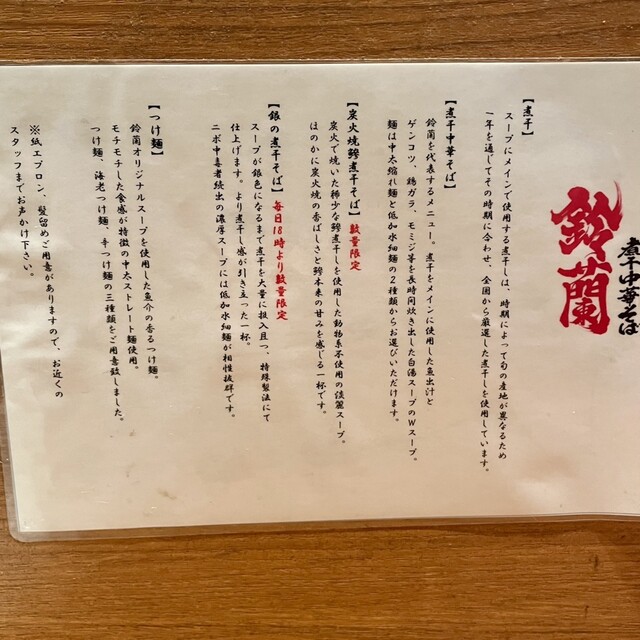 煮干中華そば
鈴蘭
【煮干】
スープにメインで使用する煮干しは、時期によって旬の産地が異なるため
一年を通じてその時期に合わせ、全国から厳選した煮干しを使用しています。
【煮干中華そば】
鈴蘭を代表するメニュー。煮干をメインに使用した魚出汁と
ゲンコツ、鶏ガラ、モミジ等を長時間炊き出した白湯スープのWスープ。
麺は中太縮れ麺と低加水細麺の2種類からお選びいただけます。
【炭火焼鯵煮干そば】数量限定
炭火で焼いた稀少な鯵煮干しを使用した動物系不使用の淡麗スープ。
ほのかに炭火焼の香ばしさと鯵本来の甘みを感じる一杯です。
【銀の煮干そば】毎日18時より数量限定
スープが銀色になるまで煮干を大量に投入且つ、特殊製法にて
仕上げます。より煮干し感が引き立った一杯。
ニボ中毒者続出の濃厚スープには低加水細麺が相性抜群です。
【つけ麺】
鈴蘭オリジナルスープを使用した魚介の香るつけ麺。
モチモチした食感が特徴の中太ストレート麺使用。
つけ麺、海老つけ麺、辛つけ麺の三種類をご用意致しました。
※紙エプロン、髪留めご用意がありますので、お近くの
スタッフまでお声かけ下さい。